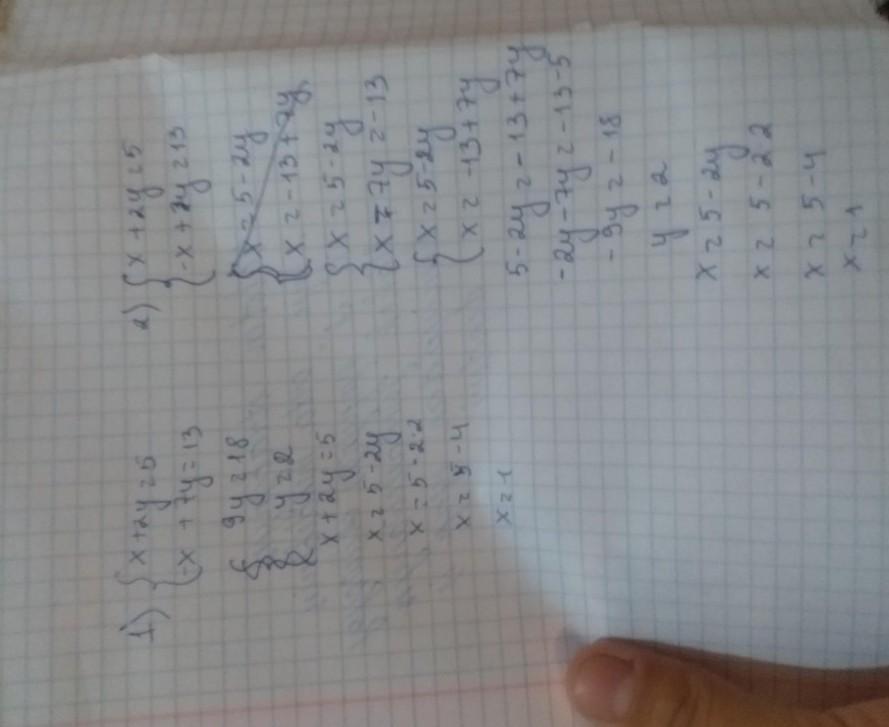 1) { x+2y=5
{ -x+7y=13
{ 9y=18
{ y=2
x+2y=5
x=5-2y
x=5-2·2
x=5-4
x=1
2) { x+2y=5
{ -x+7y=13
{ x=5-2y
{ x=-13+7y
{ x=5-2y
{ x-7y=-13
{ x=5-2y
{ x=-13+7y
5-2y=-13+7y
-2y-7y=-13-5
-9y=-18
y=2
x=5-2y
x=5-2·2
x=5-4
x=1